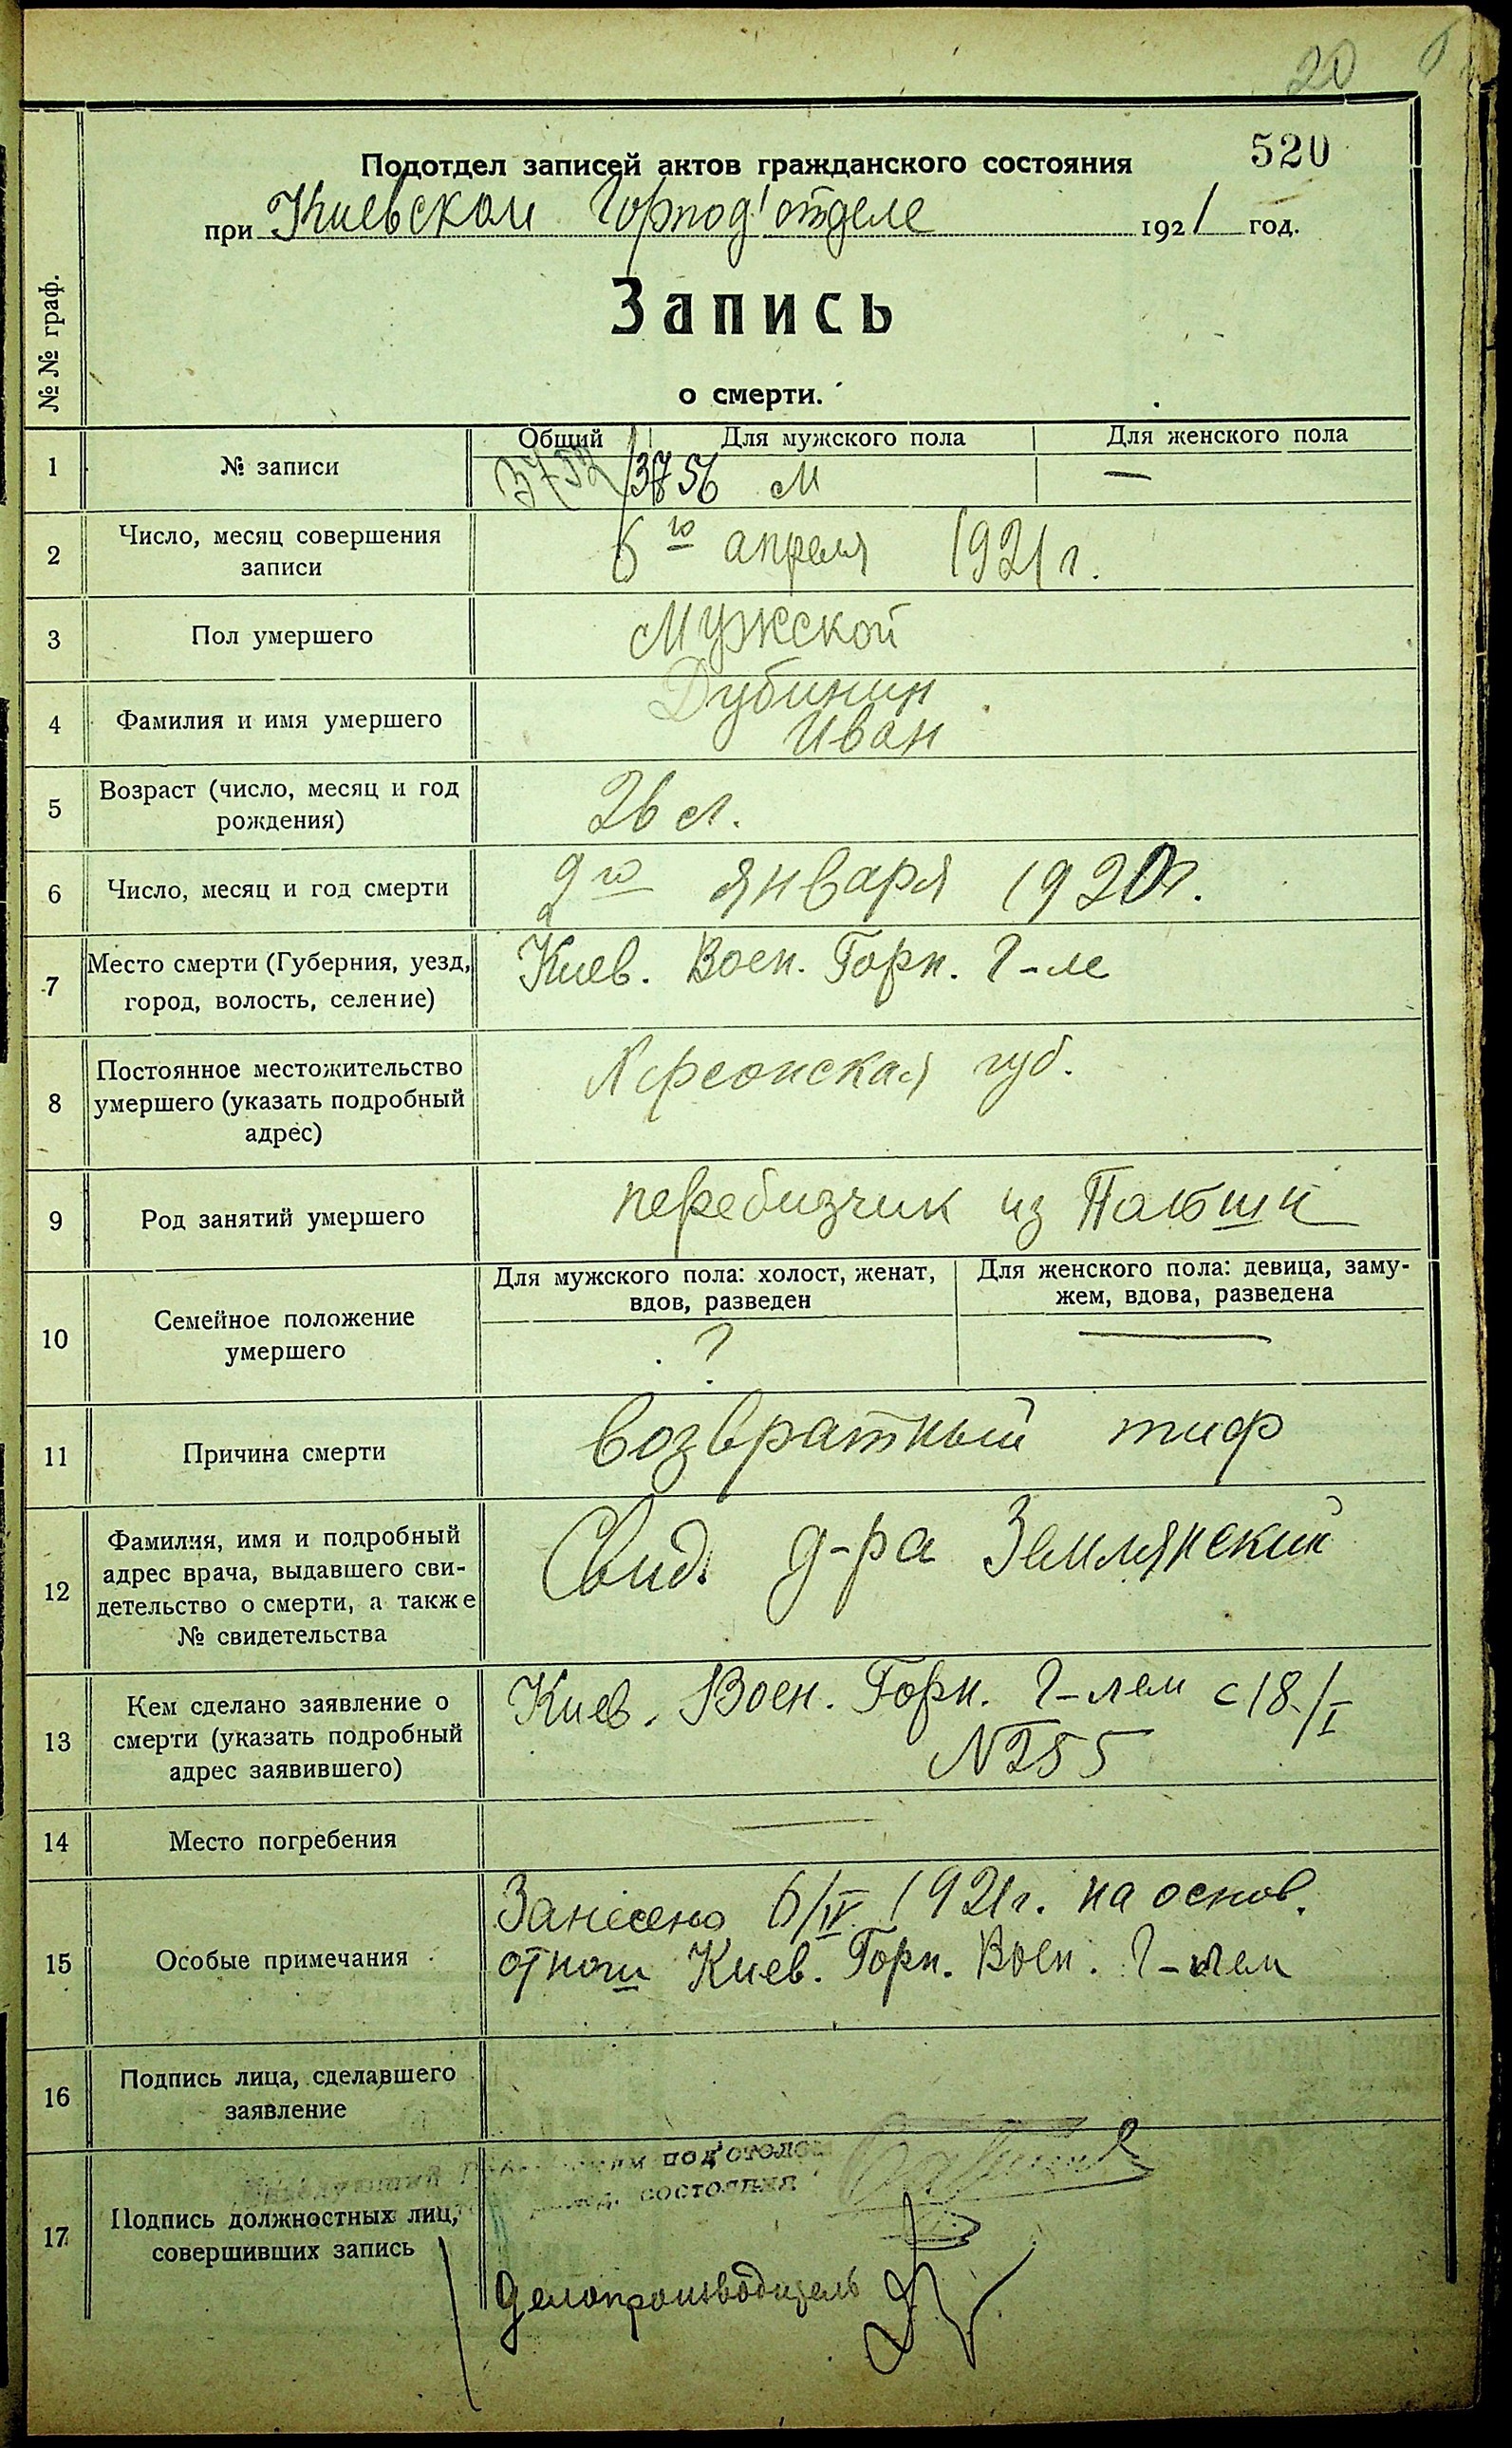 20
520
Подотдел записей актов гражданского состояния
при Киевском Горпод'отделе 1921 год.
Запись
о смерти.
№№ граф.
Общий Для мужского пола Для женского пола
1 № записи 3756 М —
2 Число, месяц совершения
записи
6го апреля 1921 г.
3 Пол умершего Мужской
4 Фамилия и имя умершего Дубинин
Иван
5 Возраст (число, месяц и год
рождения)
26 л.
6 Число, месяц и год смерти 9го января 1920г.
7 Место смерти (Губерния, уезд,
город, волость, селение)
Киев. Воен. Горн. Г-ле
8 Постоянное местожительство
умершего (указать подробный
адрес)
Херсонская губ.
9 Род занятий умершего из
10 Семейное положение
умершего
Для мужского пола: холост, женат,
вдов, разведен
Для женского пола: девица, заму-
жем, вдова, разведена
? —
11 Причина смерти возвратный тиф
12 Фамилия, имя и подробный
адрес врача, выдавшего сви-
детельство о смерти, а также
№ свидетельства
Свид. д-ра Землянский
13 Кем сделано заявление о
смерти (указать подробный
адрес заявившего)
Киев. Воен. Горн. Г-лем с 18/I
№255
14 Место погребения —
15 Особые примечания
Занесено 6/IV 1921г. на основ.
отнош Киев. Горн. Воен. Г-лем
16 Подпись лица, сделавшего
заявление
17 Подпись должностных лиц,
совершивших запись
под'отдело
состояния
Делопроизводитель